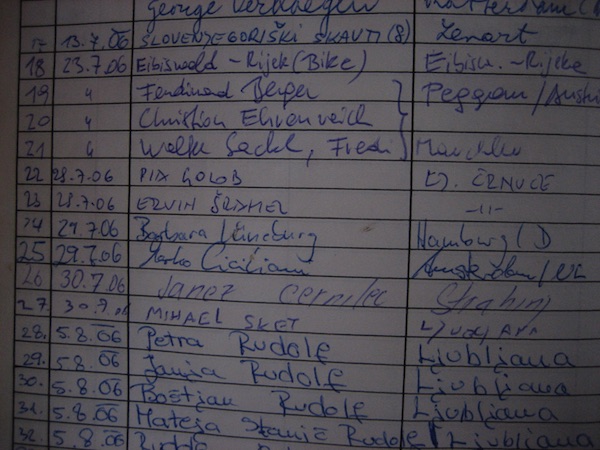 George
17 13.7.06 SLOVENJEGORIŠKI SKAVTI (8) Lenart
18 23.7.06 Eibiswald - Rijek (Bike) Eibisw. - Rijeke
19 " Ferdinand Berger Peggau/Austri
20 " Christian Ehrenreich
21 " , Fredi
22 28.7.06 PIA GOLOB LJ. ČRNUČE
23 28.7.06 ERVIN -11-
24 29.7.06 Barbara Lüneburg Hamburg / D
25 29.7.06 Marko Ciciliani Amsterdam / NL
26 30.7.06 Janez Cernilec
27. 30.7.06 MIHAEL SKET
28. 5.8.06 Petra RUDOLF Ljubljana
29. 5.8.06 Janja RUDOLF Ljubljana
30. 5.8.06 Boštjan RUDOLF Ljubljana
31. 5.8.06 Mateja Stanič Rudolf Ljubljana
32. 5.8.06